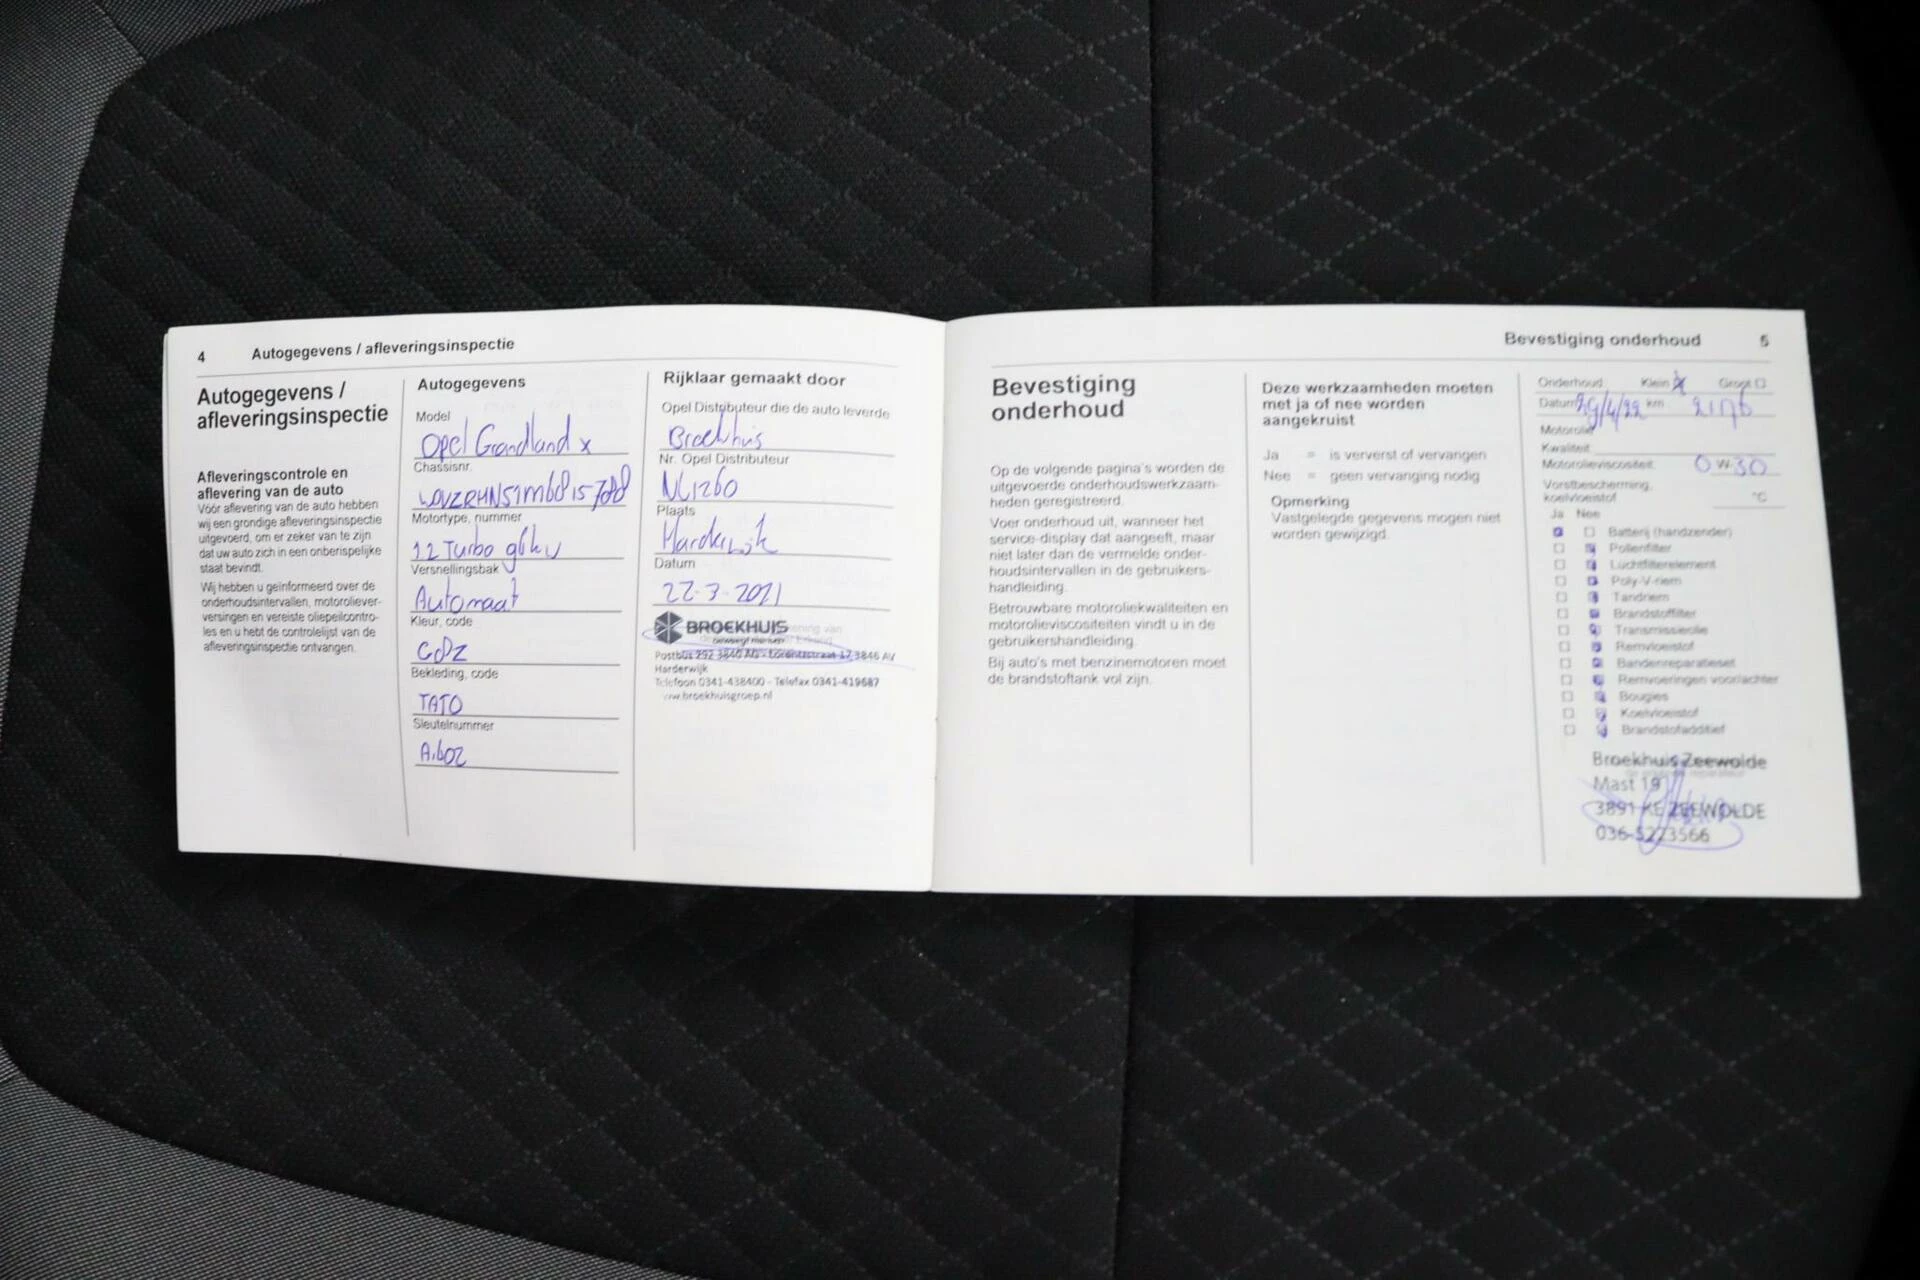 4 Autogegevens / afleveringsinspectie
Autogegevens /
afleveringsinspectie
Afleveringscontrole en
aflevering van de auto
Vóór aflevering van de auto hebben
wij een grondige afleveringsinspectie
uitgevoerd, om er zeker van te zijn
dat uw auto zich in een onberispelijke
staat bevindt.
Wij hebben u geïnformeerd over de
onderhoudsintervallen, motoroliever-
versingen en vereiste oliepeilcontro-
les en u hebt de controlelijst van de
afleveringsinspectie ontvangen.
Autogegevens
Model
Opel Grandland x
Chassisnr.
Motortype, nummer
1.2 Turbo 96kw
Versnellingsbak
Automaat
Kleur, code
Bekleding, code
TATO
Sleutelnummer
Rijklaar gemaakt door
Opel Distributeur die de auto leverde
Broekhuis
Nr. Opel Distributeur
NL1260
Plaats
Harderwijk
Datum
22-3-2021
BROEKHUIS
beweegt mensen
Postbus 292 3840 AG - Lorentzstraat 17 3846 AV
Harderwijk
Telefoon 0341-438400 - Telefax 0341-419687
www.broekhuisgroep.nl
Bevestiging onderhoud 5
Bevestiging
onderhoud
Op de volgende pagina's worden de
uitgevoerde onderhoudswerkzaam-
heden geregistreerd.
Voer onderhoud uit, wanneer het
service-display dat aangeeft, maar
niet later dan de vermelde onder-
houdsintervallen in de gebruikers-
handleiding.
Betrouwbare motoroliekwaliteiten en
motorolieviscositeiten vindt u in de
gebruikershandleiding.
Bij auto's met benzinemotoren moet
de brandstoftank vol zijn.
Deze werkzaamheden moeten
met ja of nee worden
aangekruist
Ja = is ververst of vervangen
Nee = geen vervanging nodig
Opmerking
Vastgelegde gegevens mogen niet
worden gewijzigd.
Onderhoud: Klein Groot
Datum 29/4/22 km 2176
Motorolie
Kwaliteit
Motorolieviscositeit 0 W-30
Vorstbescherming,
koelvloeistof °C
Ja Nee
Batterij (handzender)
Pollenfilter
Luchtfilterelement
Poly-V-riem
Tandriem
Brandstoffilter
Transmissieolie
Remvloeistof
Bandenreparatieset
Remvoeringen voor/achter
Bougies
Koelvloeistof
Brandstofadditief
Broekhuis Zeewolde
Mast 19
3891 KE ZEEWOLDE
036-5223566